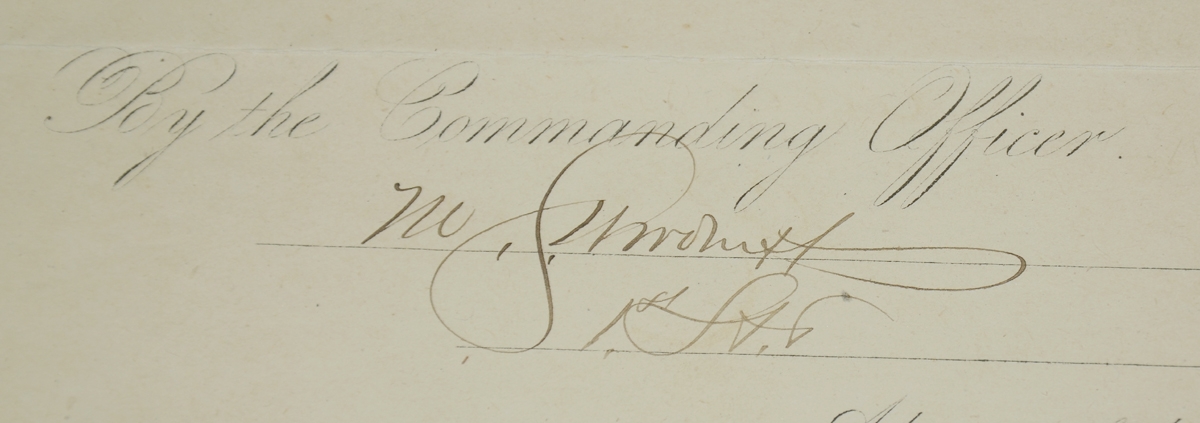 By the Commanding Officer.
M. S.
1st Lt.